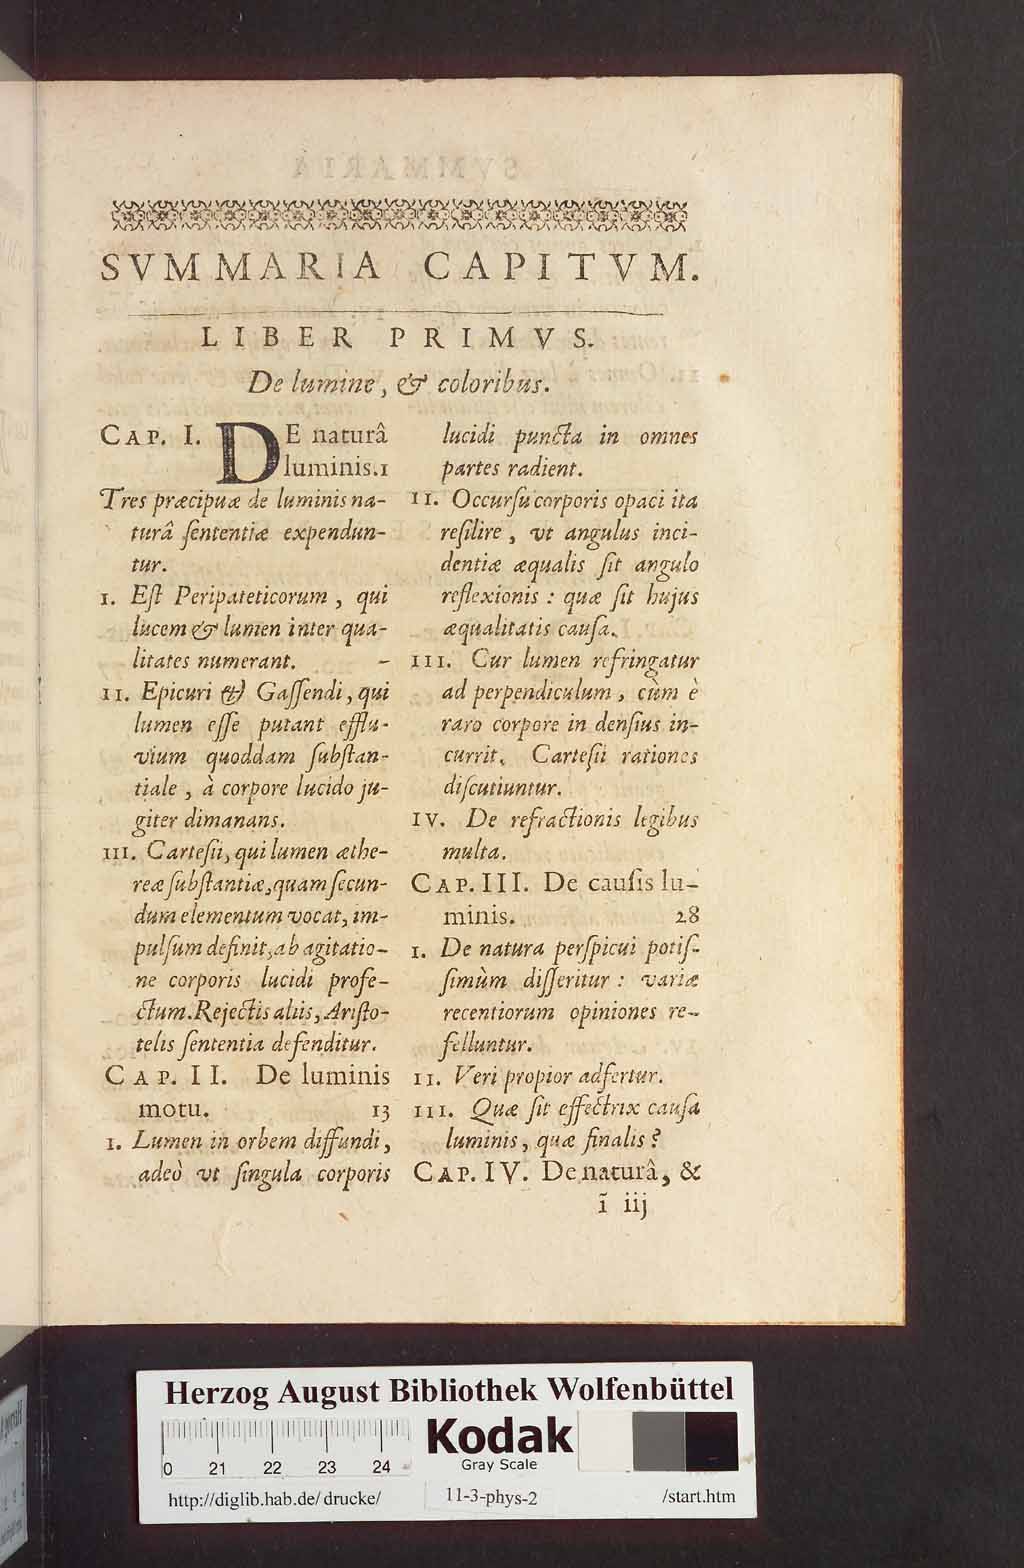 SVMMARIA CAPITVM.
LIBER PRIMVS.
De lumine, & coloribus.
CAP. I. DE naturâ
luminis. 1
Tres præcipuæ de luminis na-
turâ ſententiæ expendun-
tur.
I. Eſt Peripateticorum, qui
lucem & lumen inter qua-
litates numerant. -
II. Epicuri & Gaſſendi, qui
lumen eſſe putant efflu-
vium quoddam ſubſtan-
tiale, à corpore lucido ju-
giter dimanans.
III. Carteſii, qui lumen æthe-
reæ ſubſtantiæ, quam ſecun-
dum elementum vocat, im-
pulſum definit, ab agitatio-
ne corporis lucidi profe-
ctum. Rejectis aliis, Ariſto-
telis ſententia defenditur.
CAP. II. De luminis
motu. 13
I. Lumen in orbem diffundi,
adeò vt ſingula corporis
lucidi puncta in omnes
partes radient.
II. Occurſu corporis opaci ita
reſilire, vt angulus inci-
dentiæ æqualis ſit angulo
reflexionis : quæ ſit hujus
æqualitatis cauſa.
III. Cur lumen refringatur
ad perpendiculum, cùm è
raro corpore in denſius in-
currit. Carteſii rationes
diſcutiuntur.
IV. De refractionis legibus
multa.
CAP. III. De cauſis lu-
minis. 28
I. De natura perſpicui potiſ-
ſimùm diſſeritur : variæ
recentiorum opiniones re-
felluntur.
II. Veri propior adfertur.
III. Quæ ſit effectrix cauſa
luminis, quæ finalis?
CAP. IV. De naturâ, &
ĩ iij
Herzog August Bibliothek Wolfenbüttel
0 21 22 23 24
Kodak
Gray Scale
http://diglib.hab.de/drucke/ 11-3-phys-2 /start.htm